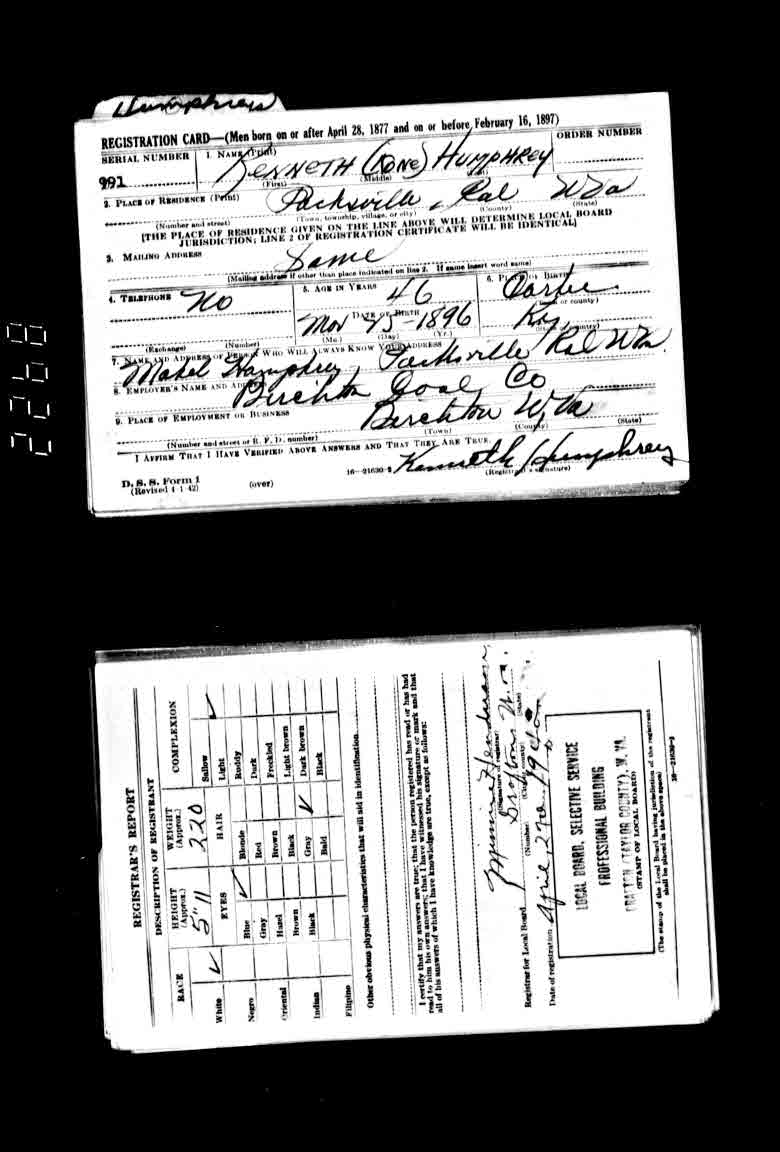 Humphreys
REGISTRATION CARD—(Men born on or after April 28, 1877 and on or before February 16, 1897)
SERIAL NUMBER 1. NAME (Print) ORDER NUMBER
991 KENNETH (NONE) HUMPHREY
(First) (Middle) (Last)
2. PLACE OF RESIDENCE (Print) Packsville, Ral W Va
(Number and street) (Town, township, village, or city) (County) (State)
[THE PLACE OF RESIDENCE GIVEN ON THE LINE ABOVE WILL DETERMINE LOCAL BOARD
JURISDICTION; LINE 2 OF REGISTRATION CERTIFICATE WILL BE IDENTICAL]
3. MAILING ADDRESS
Same
[Mailing address if other than place indicated on line 2. If same insert word same]
4. TELEPHONE 5. AGE IN YEARS 6. PLACE OF BIRTH
No 46
(Town or county)
DATE OF BIRTH
Nov 25-1896 Ky
(Exchange) (Number) (Mo.) (Day) (Yr.) (State or country)
7. NAME AND ADDRESS OF PERSON WHO WILL ALWAYS KNOW YOUR ADDRESS
Mabel Humphrey, Packsville Ral W Va.
8. EMPLOYER'S NAME AND ADDRESS
Birchton Coal Co
9. PLACE OF EMPLOYMENT OR BUSINESS
Birchton W, Va
(Number and street or R. F. D. number) (Town) (County) (State)
I AFFIRM THAT I HAVE VERIFIED ABOVE ANSWERS AND THAT THEY ARE TRUE.
Kenneth Humphrey
D. S. S. Form 1 16—21630-2 (Registrant's signature)
(Revised 4-1-42) (over)
2268
REGISTRAR'S REPORT
DESCRIPTION OF REGISTRANT
RACE HEIGHT (Approx.) WEIGHT (Approx.) COMPLEXION
5"11 220
White ✓ EYES HAIR Sallow
Light ✓
Negro Blue ✓ Blonde Ruddy
Gray Red Dark
Oriental Hazel Brown Freckled
Brown Black Light brown
Indian Black Gray ✓ Dark brown
Filipino Bald Black
Other obvious physical characteristics that will aid in identification
I certify that my answers are true; that the person registered has read or has had
read to him his own answers; that I have witnessed his signature or mark and that
all of his answers of which I have knowledge are true, except as follows:
Minnie Henderson
(Signature of registrar)
Registrar for Local Board Grafton W. Va.
(Number) (City or county) (State)
Date of registration April 27th 1942
LOCAL BOARD, SELECTIVE SERVICE
PROFESSIONAL BUILDING
GRAFTON (TAYLOR COUNTY), W. VA.
(STAMP OF LOCAL BOARD)
(The stamp of the Local Board having jurisdiction of the registrant
shall be placed in the above space)
16—21630-2